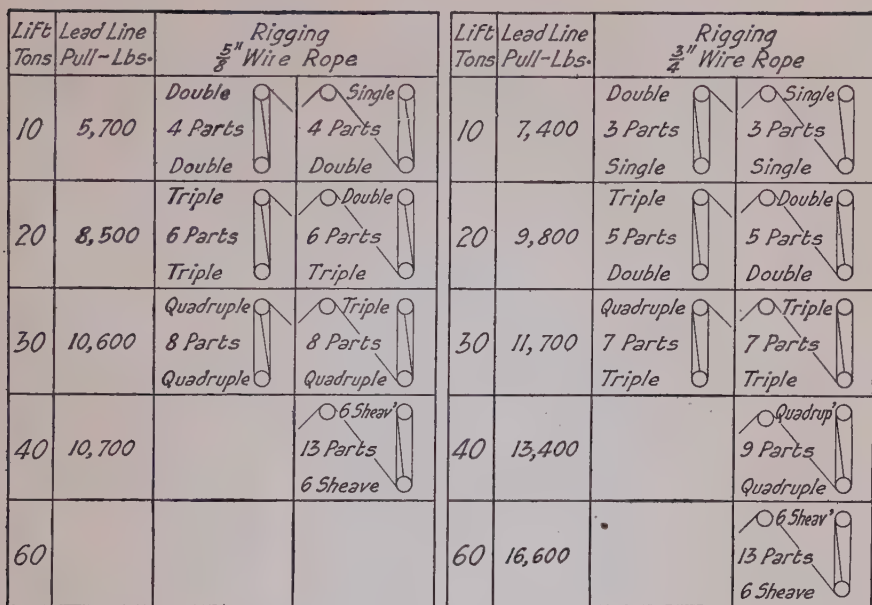 Lift Tons Lead Line Pull-Lbs. Rigging 5/8" Wire Rope
10 5,700
Double
4 Parts
Double
Single
4 Parts
Double
20 8,500
Triple
6 Parts
Triple
Double
6 Parts
Triple
30 10,600
Quadruple
8 Parts
Quadruple
Triple
8 Parts
Quadruple
40 10,700
6 Sheav'
13 Parts
6 Sheave
60
Lift Tons Lead Line Pull-Lbs. Rigging 3/4" Wire Rope
10 7,400
Double
3 Parts
Single
Single
3 Parts
Single
20 9,800
Triple
5 Parts
Double
Double
5 Parts
Double
30 11,700
Quadruple
7 Parts
Triple
Triple
7 Parts
Triple
40 13,400
Quadrup'
9 Parts
Quadruple
60 16,600
6 Sheav'
13 Parts
6 Sheave